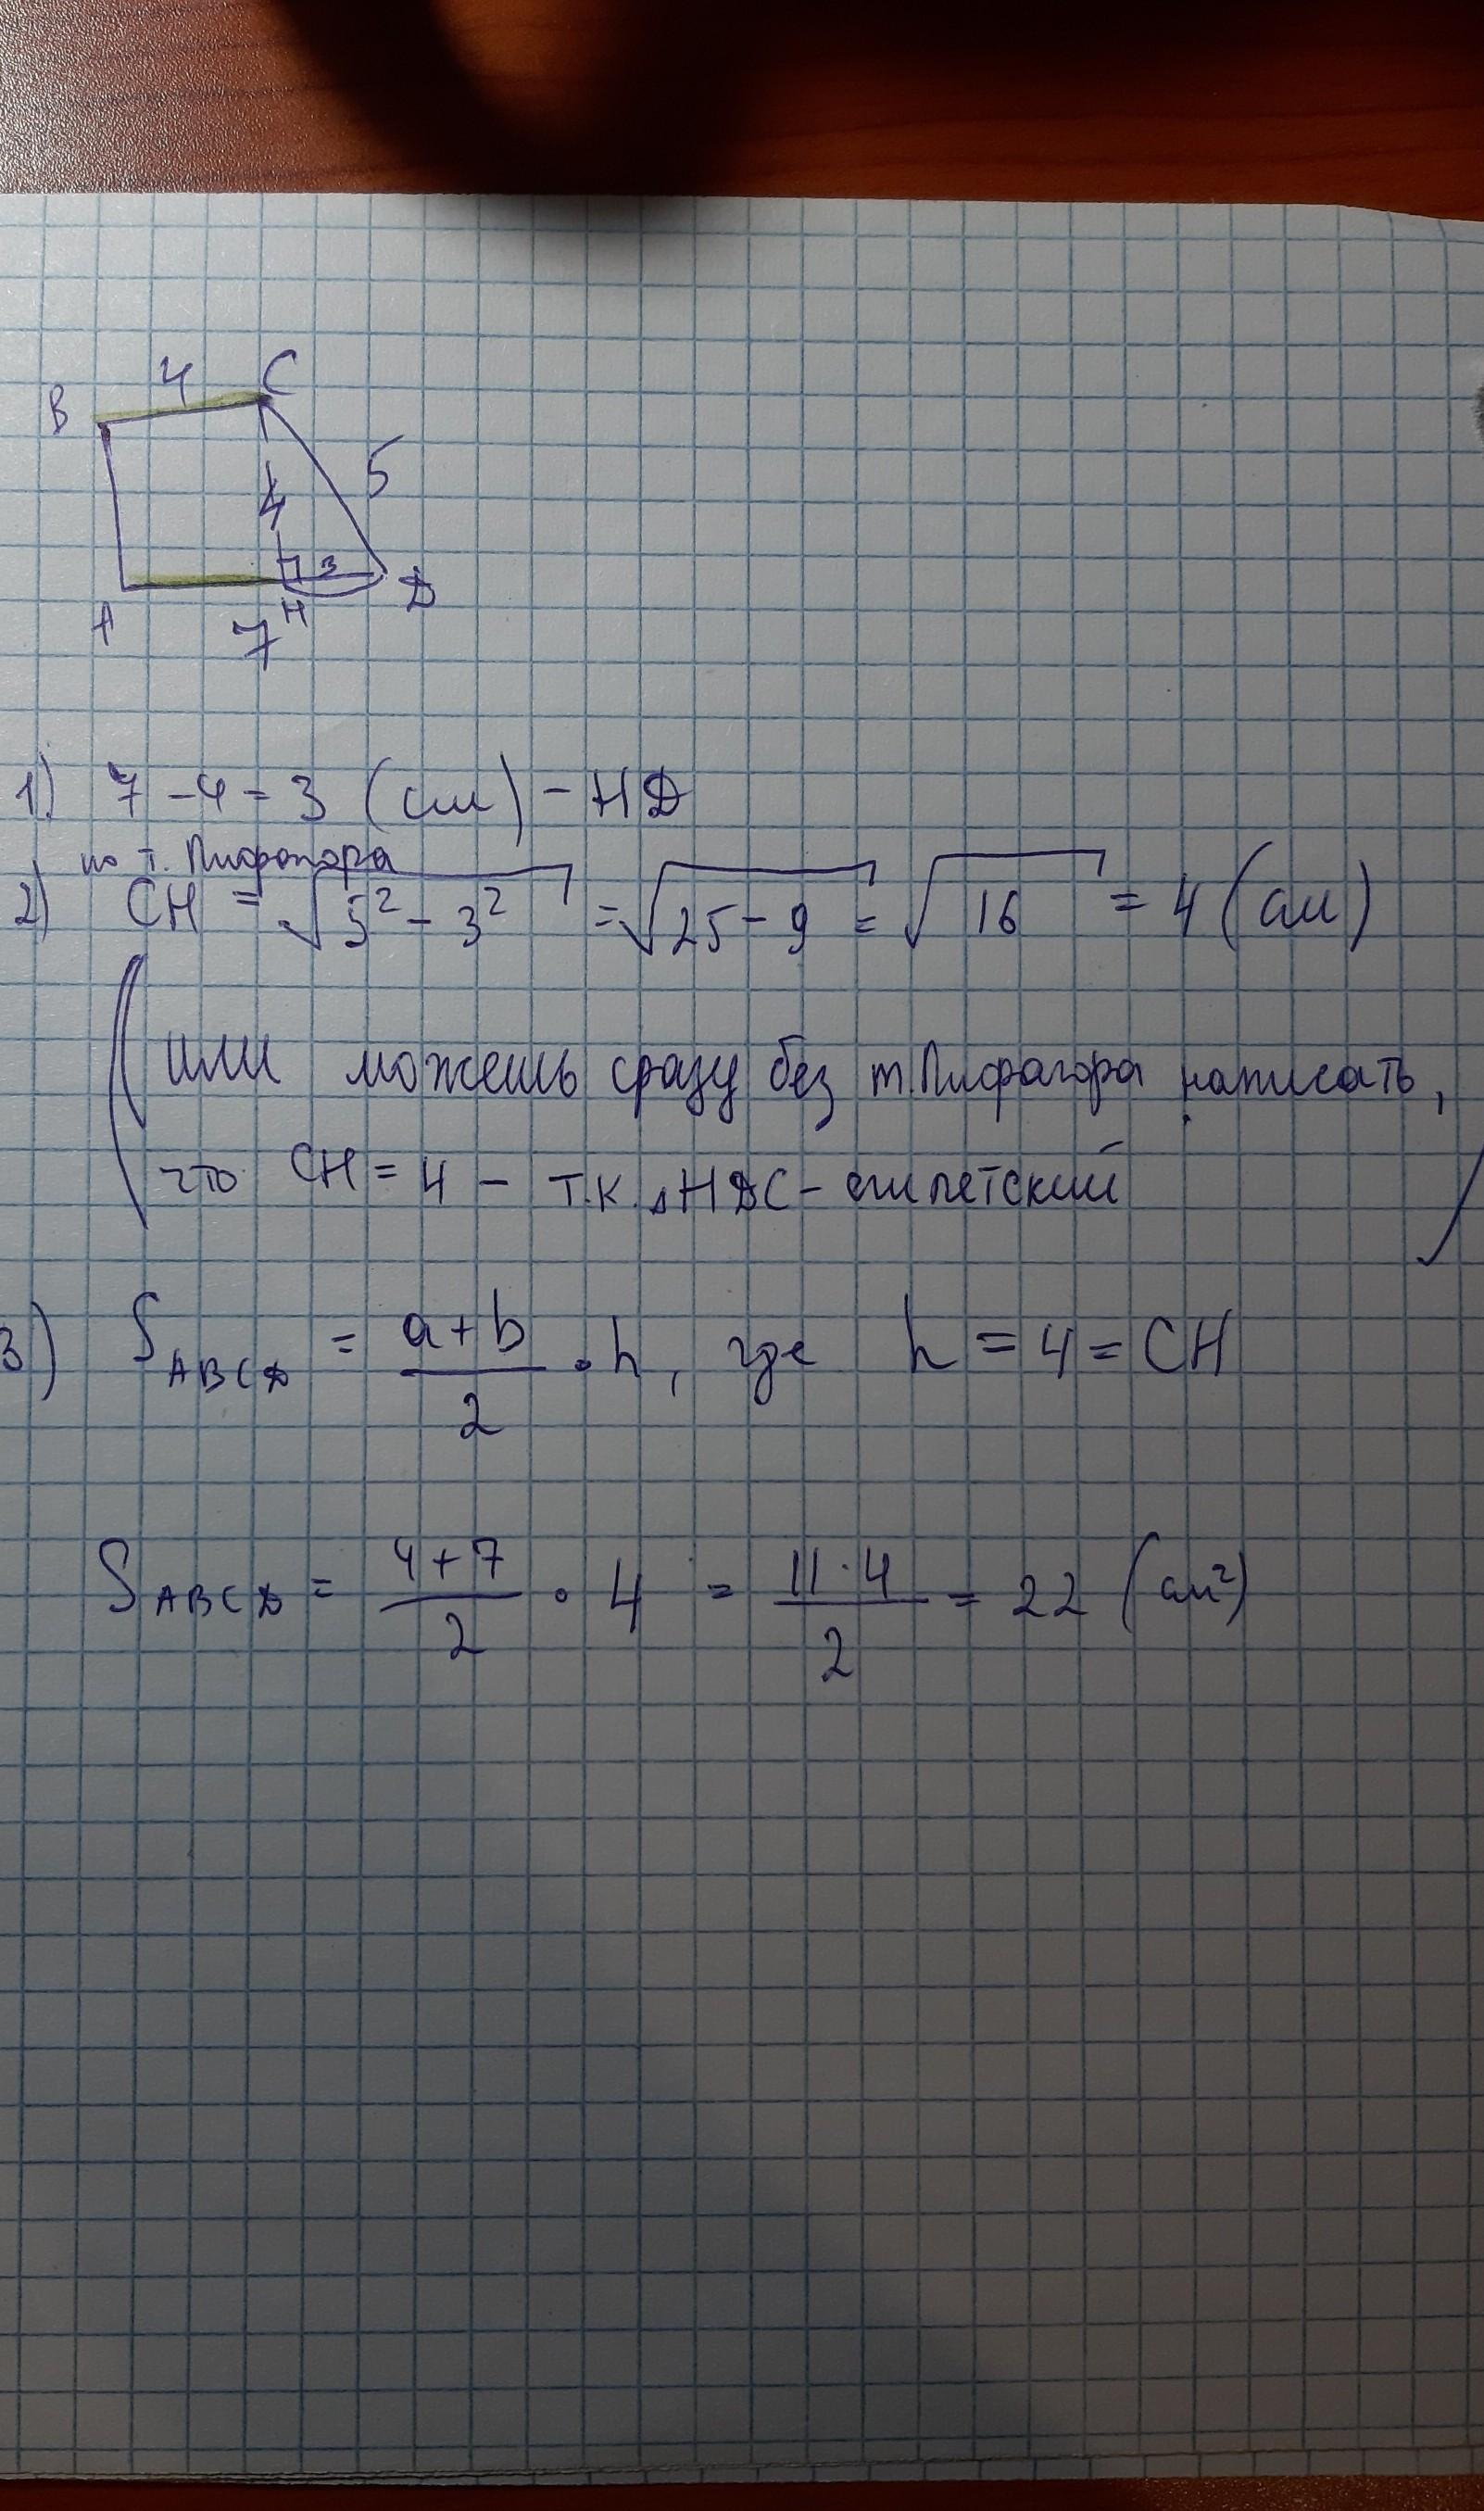 4
B C
4 5
3
A H D
7
1) 7 - 4 = 3 (см) - HD
по т. Пифагора
2) CH = √(5² - 3²) = √(25 - 9) = √16 = 4 (см)
(или можешь сразу без т. Пифагора написать,
что CH = 4 - т.к. △HDC - египетский)
3) S ABCD = (a + b)/2 · h, где h = 4 = CH
S ABCD = (4 + 7)/2 · 4 = (11 · 4)/2 = 22 (см²)